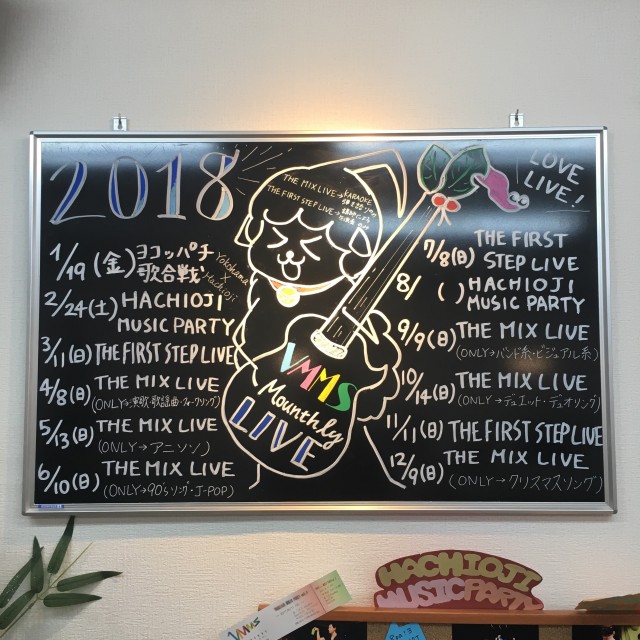 2018
LOVE
LIVE!
THE MIX LIVE→KARAOKE
THE FIRST STEP LIVE→
1/19(金)ヨコッパチ
歌合戦
Yokohama
×
Hachioji
2/24(土)HACHIOJI
MUSIC PARTY
3/11(日)THE FIRST STEP LIVE
4/8(日)THE MIX LIVE
(ONLY→演歌・歌謡曲・フォークソング)
5/13(日)THE MIX LIVE
(ONLY→アニソン)
6/10(日)THE MIX LIVE
(ONLY→90'sソング・J-POP)
VMMS
Mounthly
LIVE
7/8(日)THE FIRST
STEP LIVE
8/ ( )HACHIOJI
MUSIC PARTY
9/9(日)THE MIX LIVE
(ONLY→バンド系・ビジュアル系)
10/14(日)THE MIX LIVE
(ONLY→デュエット・デュオソング)
11/11(日)THE FIRST STEP LIVE
12/9(日)THE MIX LIVE
(ONLY→クリスマスソング)
HACHIOJI
MUSIC PARTY
VMMS